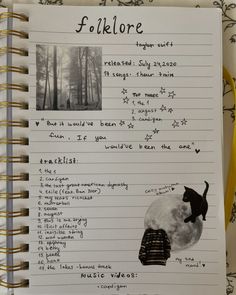 folklore
taylor swift
released: July 24, 2020
17 songs · 1 hour 7 min
TOP THREE
1. the 1
2. august
3. cardigan
"But it would've been
fun. If you
would've been the one"
tracklist:
1. the 1
2. cardigan
3. the last great american dynasty
4. exile (feat. Bon Iver)
5. my tears ricochet
6. mirrorball
7. seven
8. august
9. this is me trying
10. illicit affairs
11. invisible string
12. mad woman
13. epiphany
14. betty
15. peace
16. hoax
17. the lakes - bonus track
music videos:
- cardigan